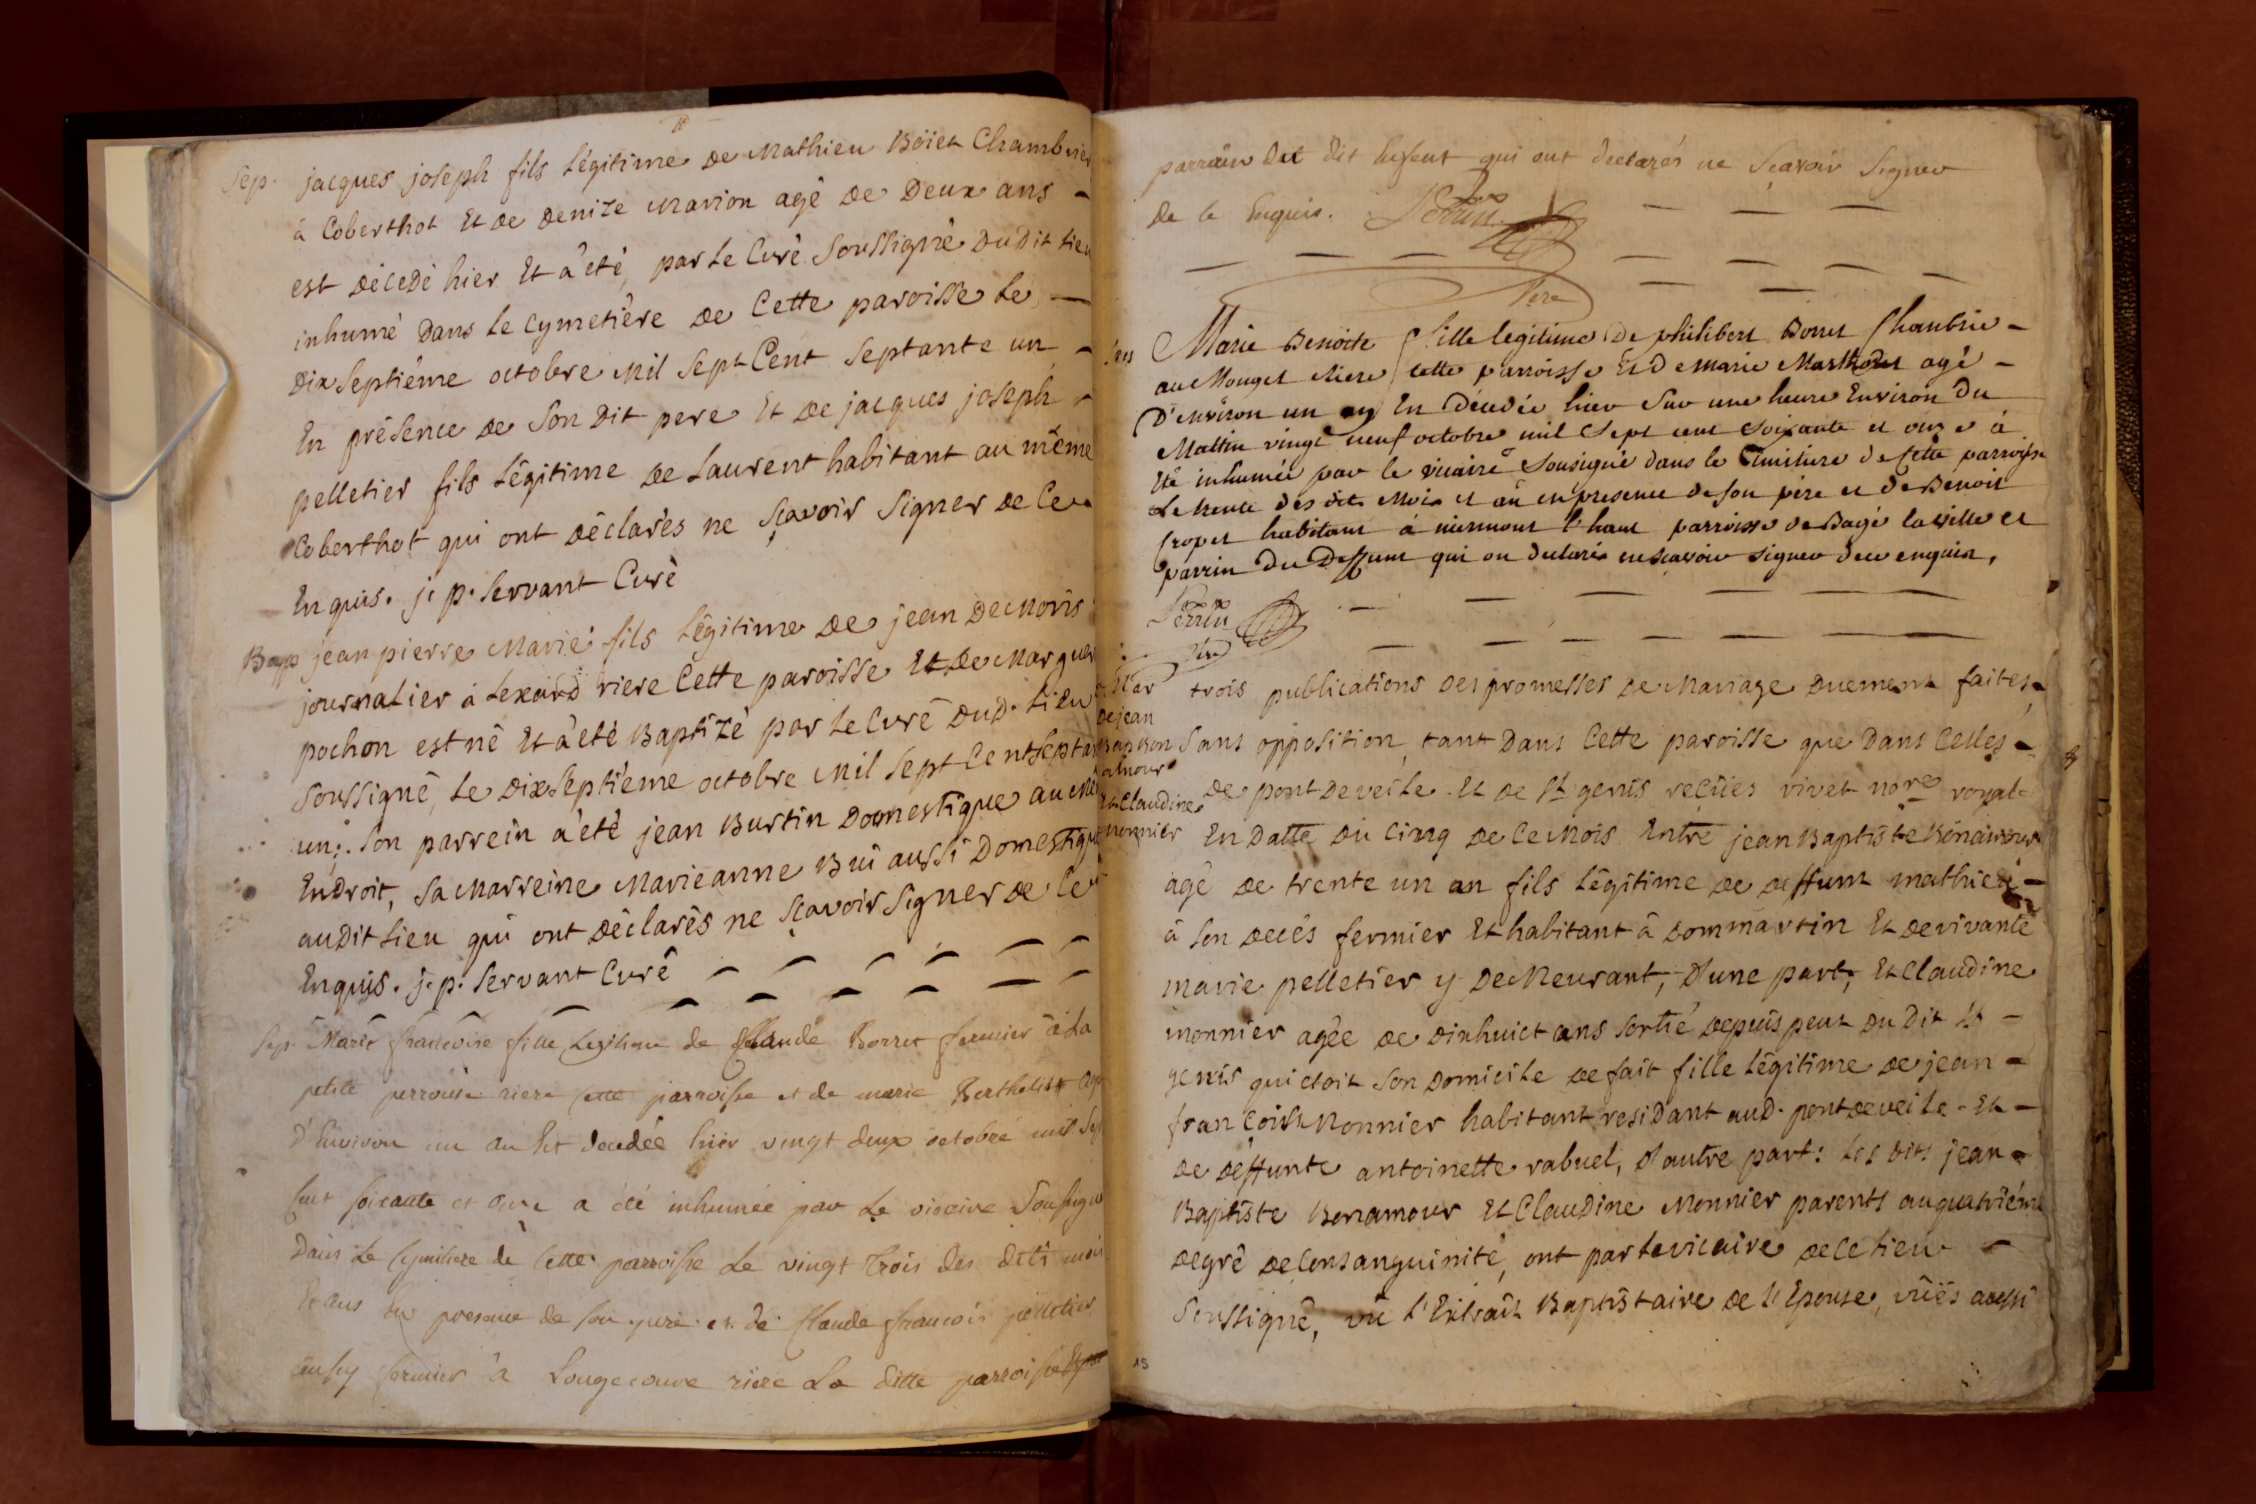 Sep. jacques joseph fils Légitime de Mathieu Böiet Chambrier
à Coberthot Et de denize Marion agé de Deux ans
est décedé hier Et a êté par Le Curé Soussigné Dudit Lieu
inhumé Dans Le Cymetiére de Cette paroisse Le
dix septiéme octobre Mil Sept Cent Septante un
En présence de Son Dit pere Et de jacques joseph
pelletier fils Légitime de Laurent habitant au même
Coberthot qui ont déclarés ne sçavoir Signer de Ce
Enquis. j. p. Servant Curé
Bap jean pierre Marie fils Légitime de jean Demoris
journalier à Lexard riere Cette paroisse Et de Marguer
pochon est né Et a êté Baptizé par Le Curé Dud. Lieu
Soussigné, Le Dix Septiéme octobre Mil Sept Cent Septan
un. Son parrein a êté jean Burtin Domestique au mê
Endroit, Sa Marreine Marieanne Bui aussi Domestique
audit Lieu qui ont déclarés ne sçavoir Signer de Ce
Enquis. j. p. Servant Curé
Sep. Marie francoise fille Legitime de Claude Borret fermier à La
petite perrouse riere Cette parroisse et de marie Berthelet agé
d'Environ un an Est decedée hier vingt deux octobre mil Sep
Cent soixante et onze a été inhumée par Le vicaire Sousigné
Dans Le Cymitiere de Cette parroisse Le vingt trois des dits mois
Et ans En presence de Son pere et de Claude francois pelletier
aussy fermier à Longecourt riere La ditte parroisse
parrain du dit Enfent qui ont declarés ne Sçavoir Signer
de ce Enquis. Perrin
Vire
Marie Benoite fille legitime De philibert Borret Chambrier
au Mouget Riere cette parroisse Et de marie Marthoud agé
D'environ un an En décedée hier Sur une heure Environ du
Mattin vingt neuf octobre mil Sept cent soixante et onze à
Eté inhumée par le vicaire Sousigné dans le Cimitiere de Cette parroisse
Le trente des dit Mois et an en presence de son pére et de Benoit
Cropet habitant à mirmont l'haut parroisse de Bagé laville et
parrin du Deffunt qui on declaré ne scavoir signer de ce enquis,
Perrin
Vire
Mar
de jean
Bap Bon
amour
Et Claudine
monnier
trois publications des promesses de Mariage Duement faites,
Sans opposition, tant Dans Cette paroisse que Dans Celles
de pontdeveile. Et de St genis reçües vivet nore royal
En Datte Du Cinq de Ce Mois Entre jean Baptiste Bonamour
agé de trente un an fils Légitime de deffunt mathieu
à Son decés fermier Et habitant à Dommartin Et de vivante
marie pelletier y DeMeurant, D'une part, Et Claudine
monnier agée de Dixhuict ans Sortie Depuis peut Du Dit St
genis qui étoit Son Domicile de fait fille Légitime de jean
francois Monnier habitant residant aud. pontdeveile. Et
de deffunte antoinette rabuel, d'autre part: Les dits jean
Baptiste Bonamour Et Claudine Monnier parents au quatriéme
degré de Consanguinité, ont par Le vicaire de Ce Lieu
Soussigné, vû L'Extrait Baptistaire de L'Epouse, vûës aussi
15